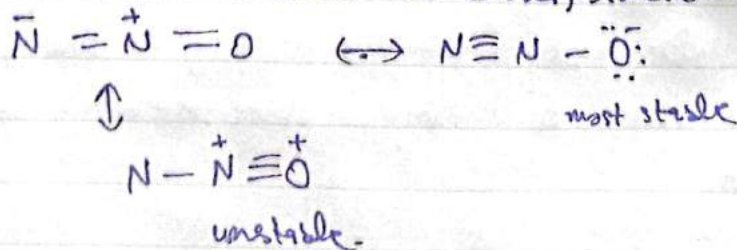 N̄ = N⁺ = O ↔ N ≡ N - Ö:⁻
↕ most stable
N - N⁺ ≡ O⁺
unstable.